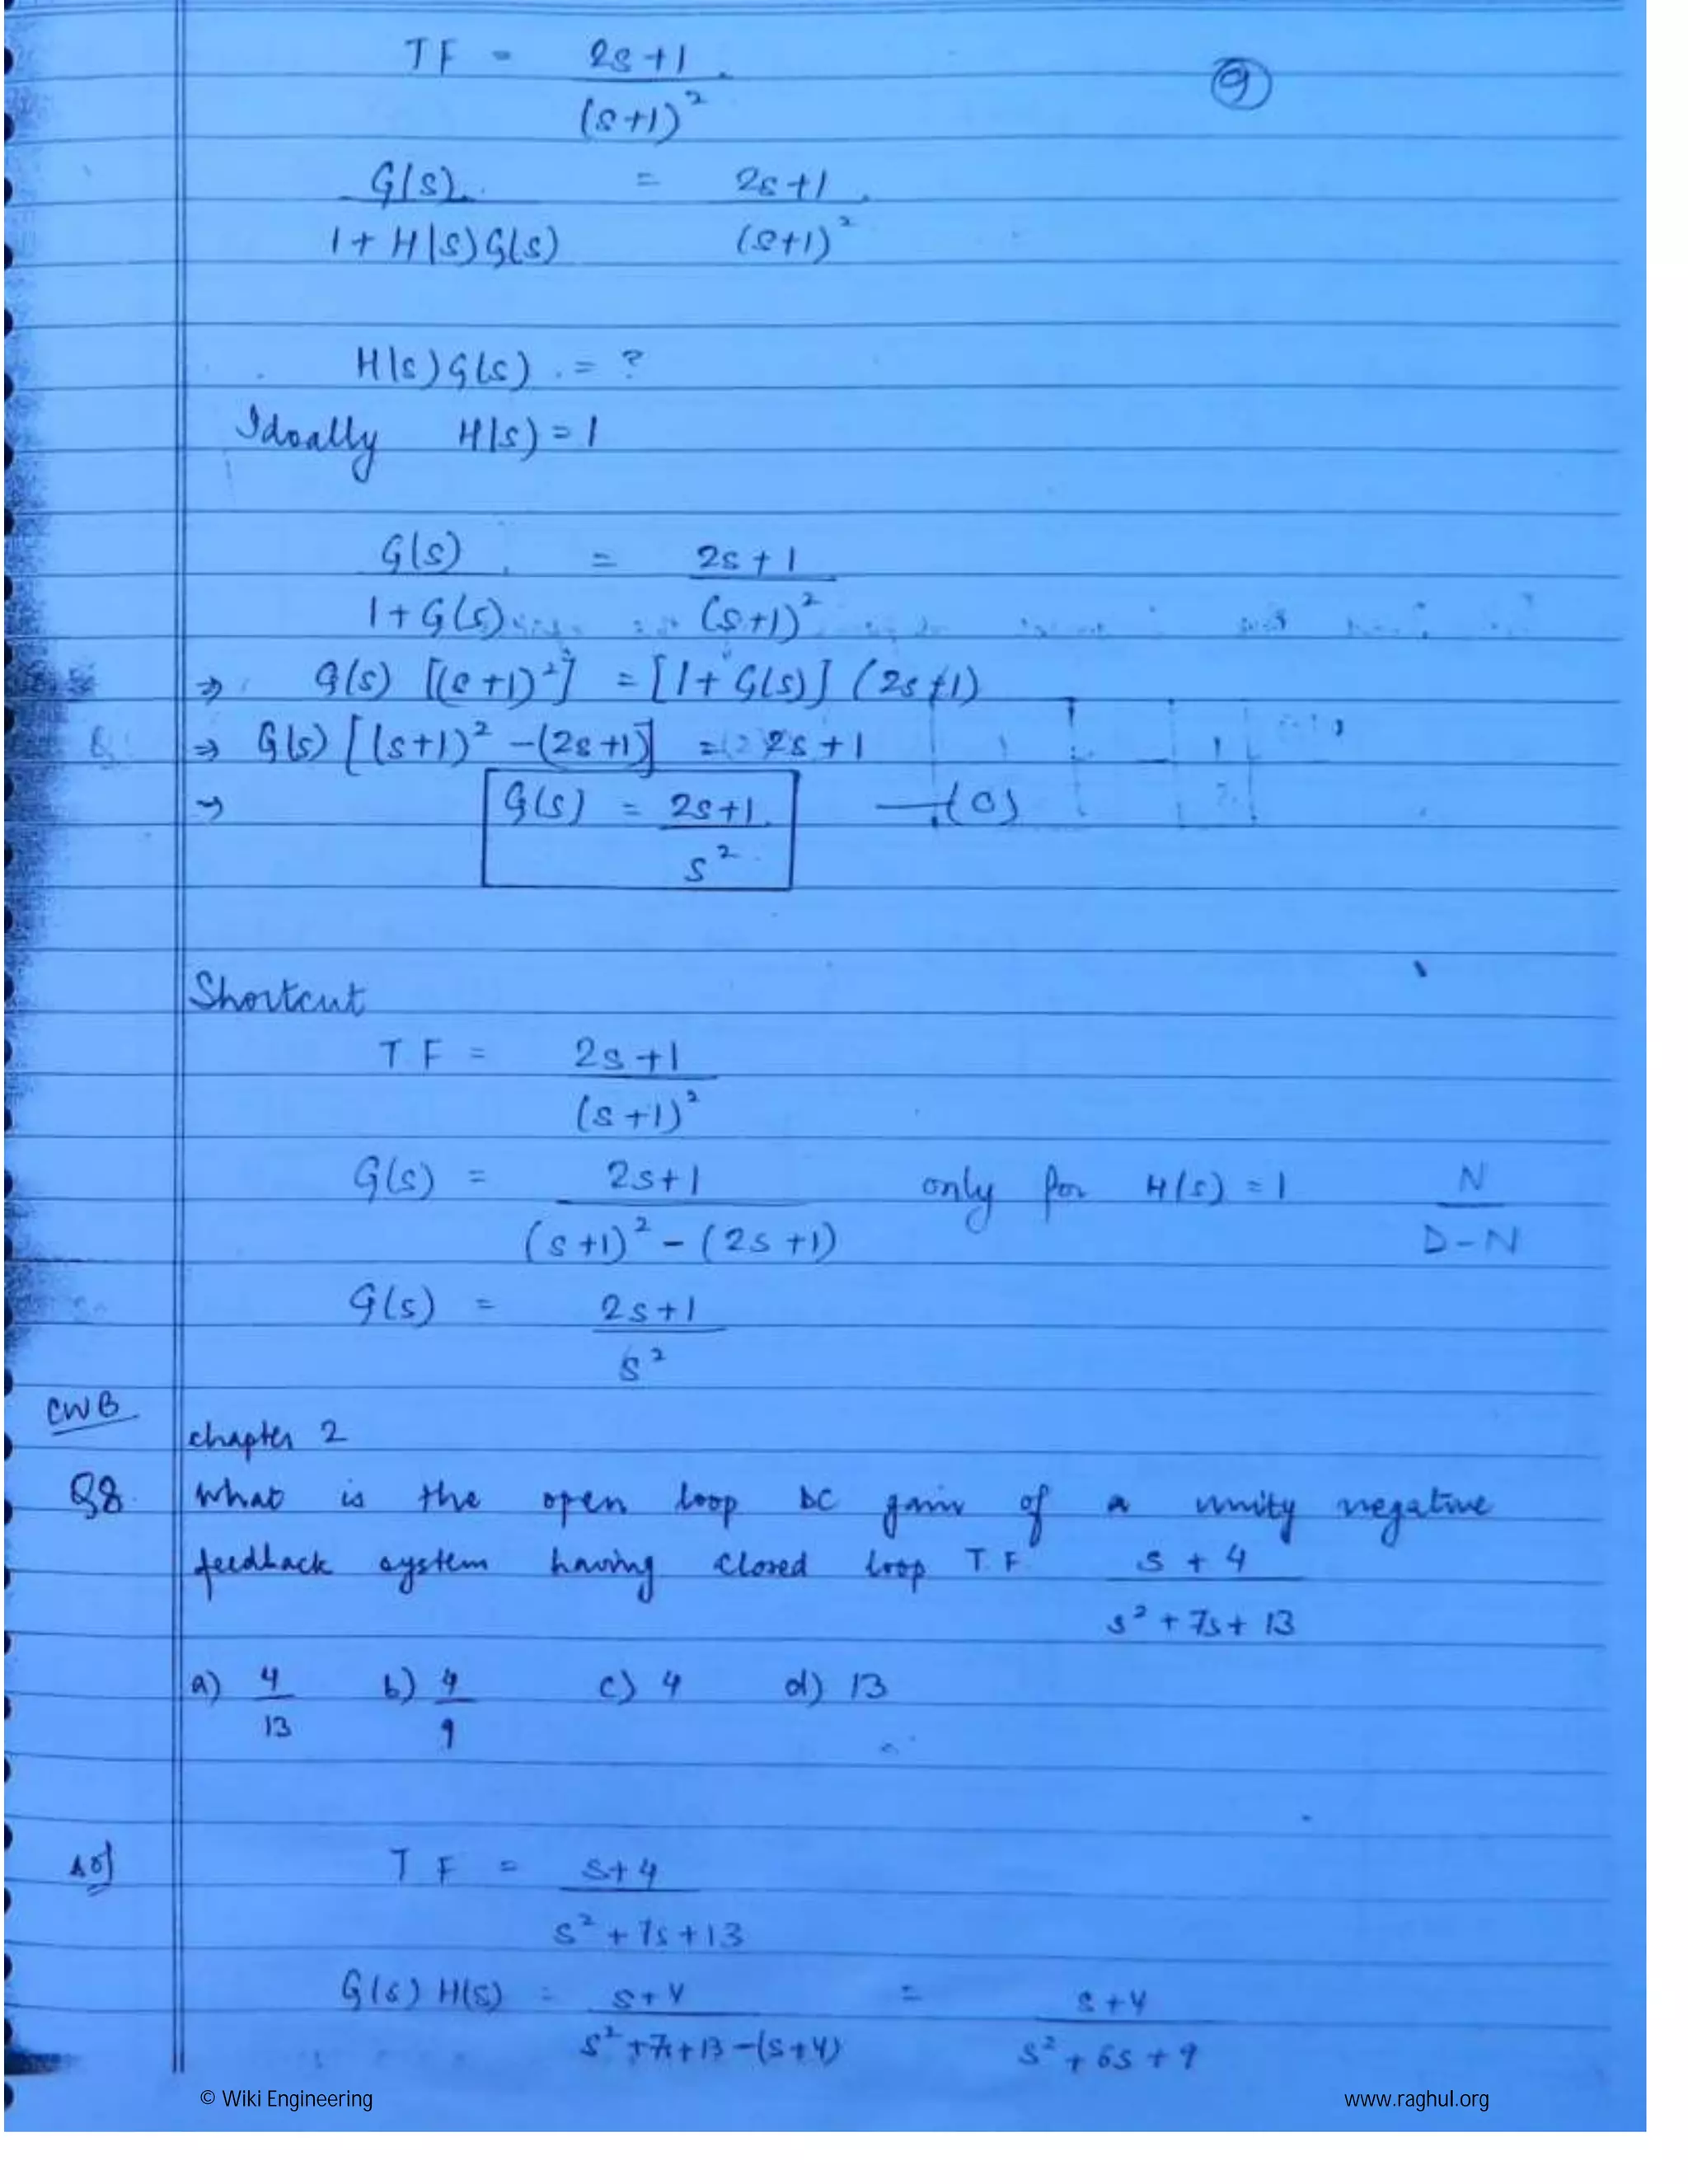 TF = 2s+1
(9)
(s+1)²
G(s) = 2s+1
1+H(s)G(s) (s+1)²
H(s)G(s) = ?
Ideally H(s) = 1
G(s) = 2s+1
1+G(s) (s+1)²
⇒ G(s) [(s+1)²] = [1+G(s)] (2s+1)
⇒ G(s) [(s+1)² -(2s+1)] = 2s+1
→ G(s) = 2s+1 —(c)
s²
Shortcut
TF = 2s+1
(s+1)²
G(s) = 2s+1 only for H(s) = 1 N
(s+1)² - (2s+1) D-N
G(s) = 2s+1
s²
CWB
chapter 2
Q8. What is the open loop DC gain of a unity negative
feedback system having closed loop T.F. s+4
s²+7s+13
a) 4 b) 4 c) 4 d) 13
13 9
TF = s+4
s²+7s+13
G(s) H(s) = s+4 = s+4
s²+7s+13-(s+4) s²+6s+9
© Wiki Engineering www.raghul.org